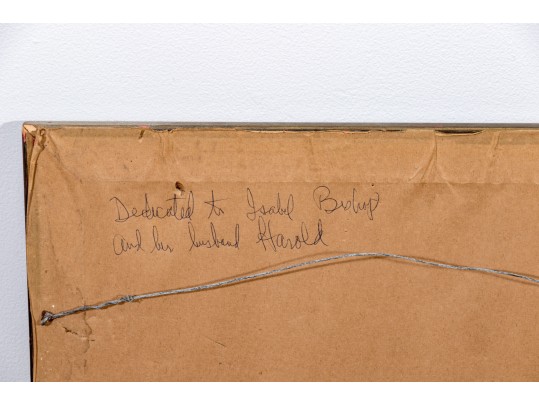 Dedicated to Isabel Bishop
and her husband Harold